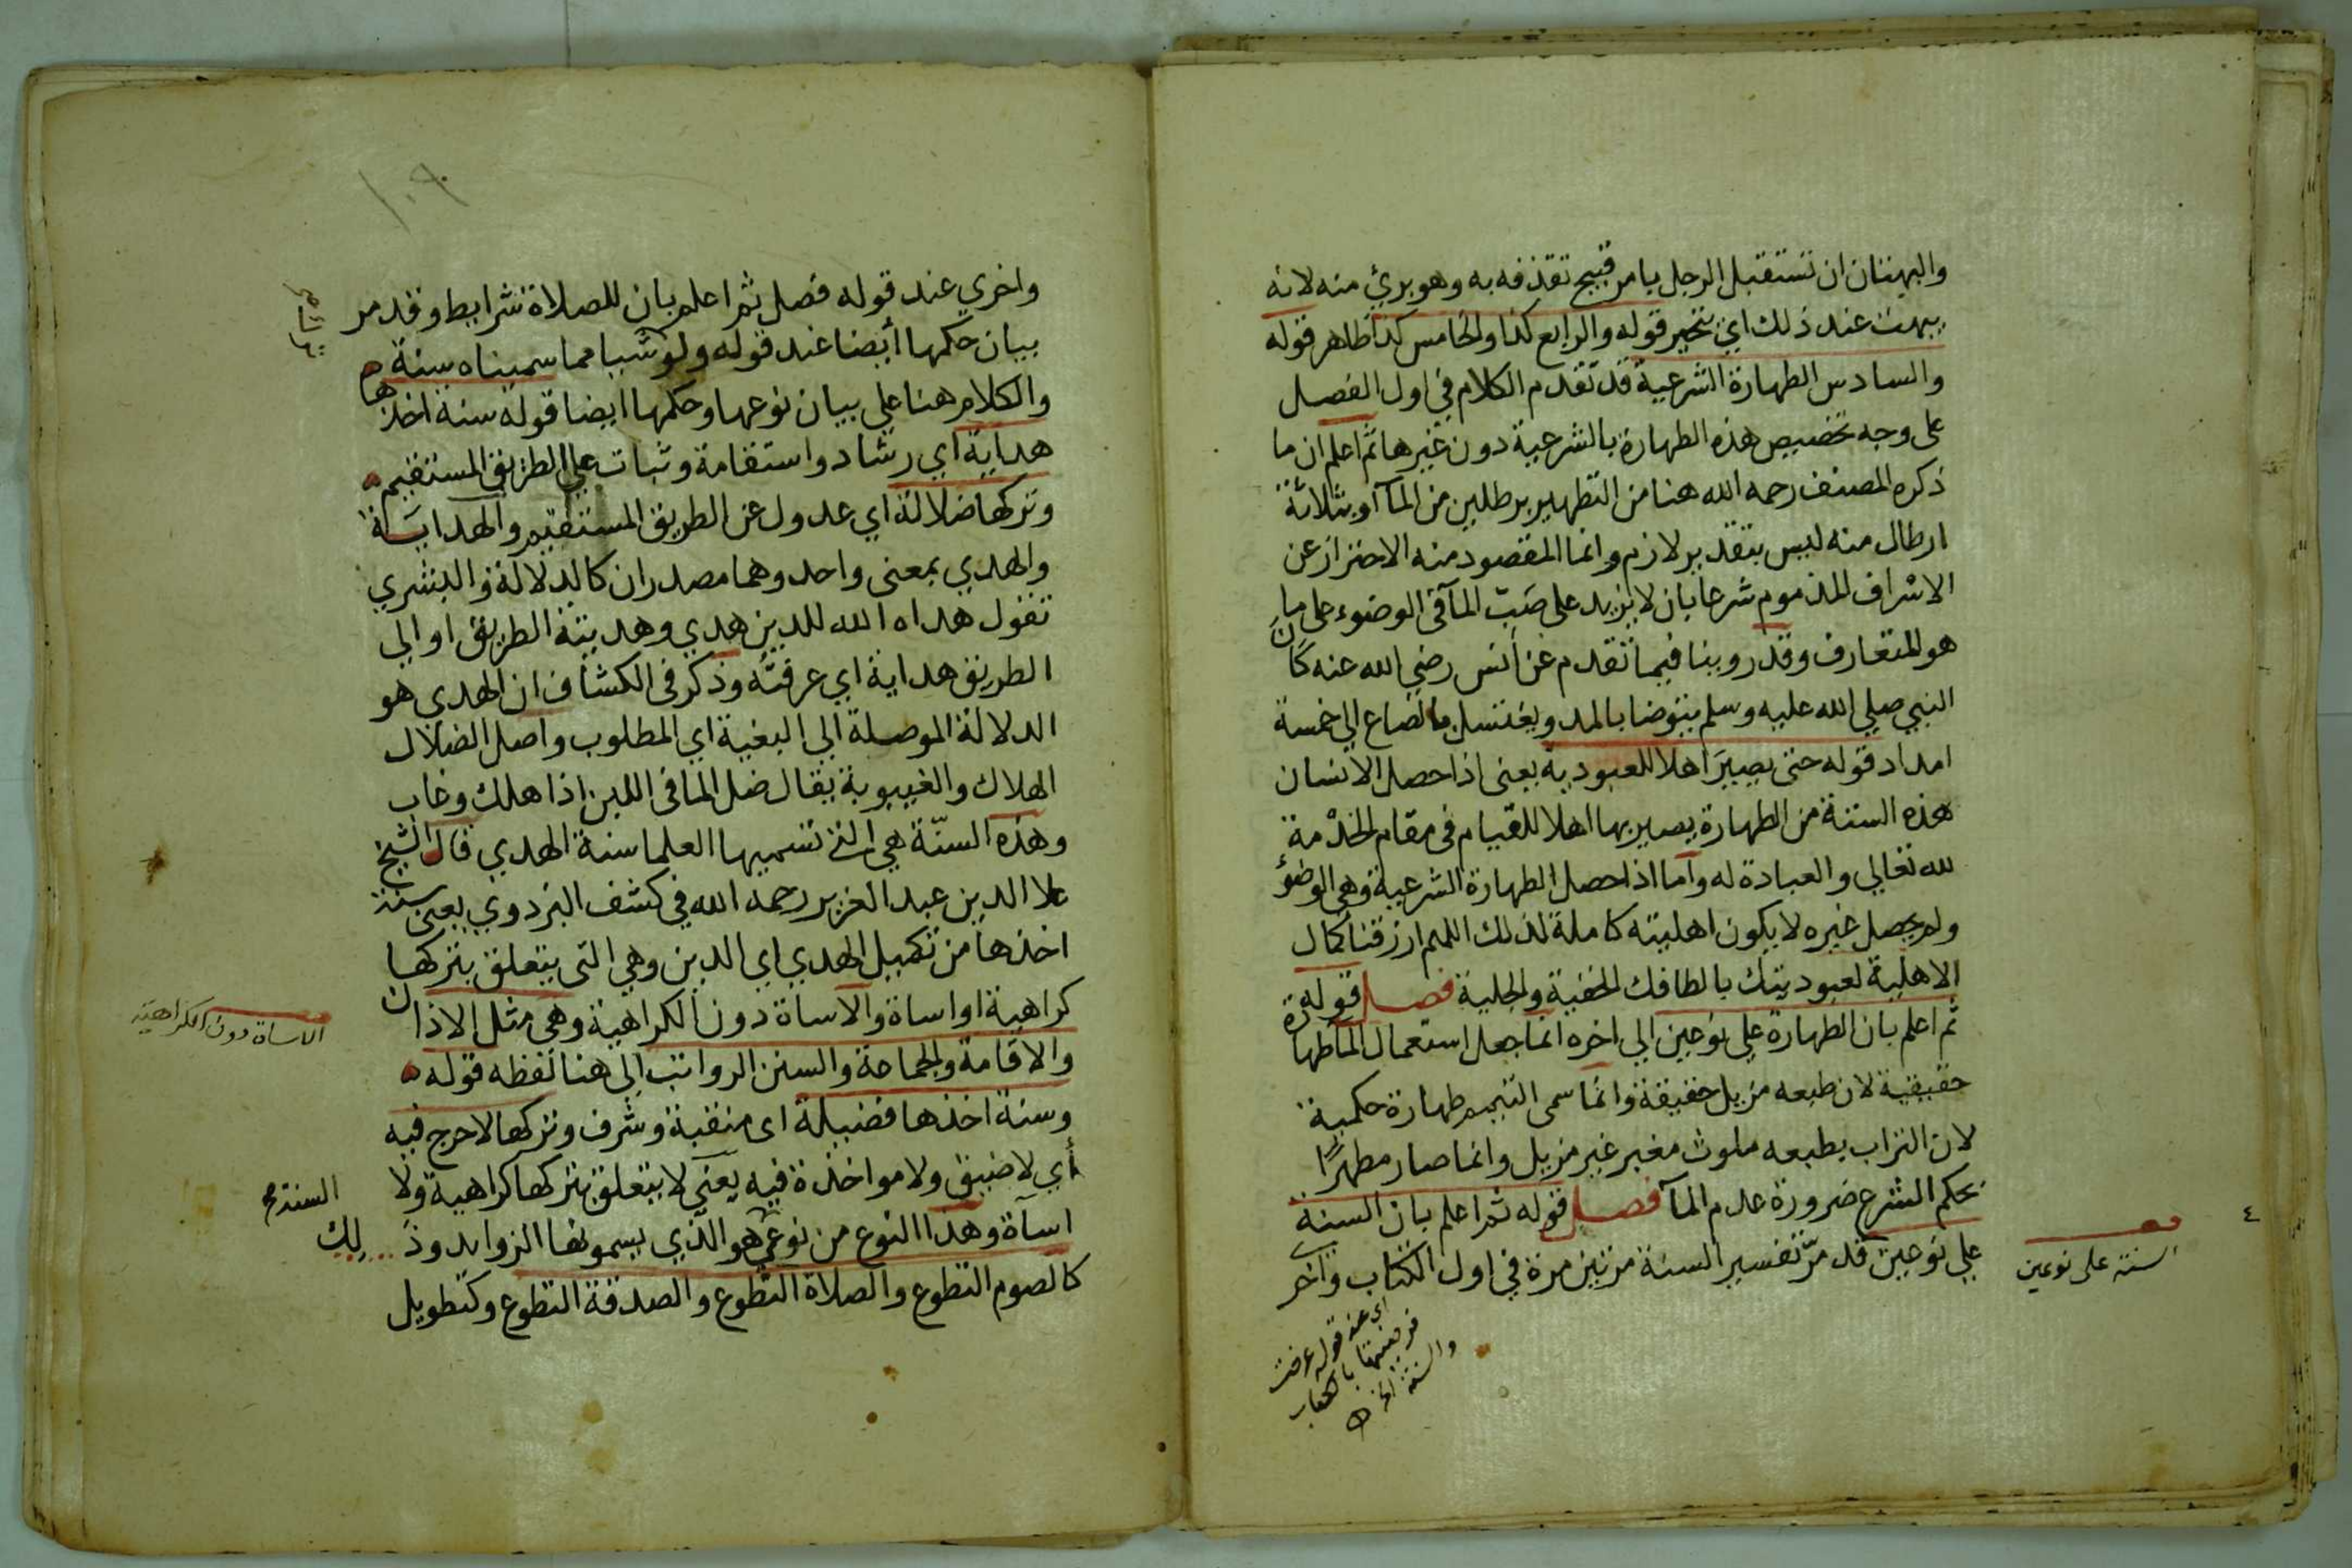 والبهتان ان تستقبل الرجل بامر قبيح تقذفه به وهو بريئ منه لانه
يبهت عند ذلك اي يتحير قوله والرابع كذا والخامس كذا ظاهر قوله
والسادس الطهارة الشرعية قد تقدم الكلام في اول الفصل
على وجه تخصيص هذه الطهارة بالشرعية دون غيرها ثم اعلم ان ما
ذكره المصنف رحمه الله هنا من التطهير برطلين من المآ او بثلاثة
ارطال منه ليس بتقدير لازم وانما المقصود منه الاحتراز عن
الاسراف المذموم شرعا بان لا يزيد على صَبّ المآ في الوضوء على ما
هو المتعارف وقد روينا فيما تقدم عن انس رضي الله عنه كان
النبي صلي الله عليه وسلم يتوضا بالمد ويغتسل بالصاع الي خمسة
امداد قوله حتى يصير اهلا للعبودية يعنى اذا حصل الانسان
هذه الستة من الطهارة يصير بها اهلا للقيام في مقام الخدمة
لله تعالي والعبادة له وآما اذا حصل الطهارة الشرعية وهي الوضؤ
ولم يحصل غيره لا يكون اهليته كاملة لذلك اللهم ارزقنا كمال
الاهلية لعبوديتك بالطافك الخفية والجلية فصل قوله
ثم اعلم بان الطهارة علي نوعين الي اخره انما جعل استعمال المآ طهارة
حقيقية لان طبعه مزيل حقيقة وانما سمى التيمم طهارة حكمية
لان التراب بطبعه ملوث مغير غير مزيل وانما صار مطهرًا
بحكم الشرع ضرورة عدم المآ فصل قوله ثم اعلم بان السنة
علي نوعين قد مرّ تفسير السنة مرتين مرة في اول الكتاب واخرى
السنة على نوعين
اي عند قوله عرفت
فرضيتها بالكتاب
والسنة الخ
واخري عند قوله فصل ثم اعلم بان للصلاة شرايط وقد مر
بيان حكمها أيضا عند قوله ولو شيا مما سميناه سنة
والكلام هنا علي بيان نوعها وحكمها ايضا قوله سنة اخذها
هداية اي رشاد واستقامة وثبات علي الطريق المستقيم
وتركها ضلالة اي عدول عن الطريق المستقيم والهداية
والهدي بمعنى واحد وهما مصدران كالدلالة والبشري
تقول هداه الله للدين هدي وهديته الطريق او الي
الطريق هداية اي عرفته وذكر في الكشاف ان الهدي هو
الدلالة الموصلة الي البغية اي المطلوب واصل الضلال
الهلاك والغيبوبة يقال ضل الما في اللبن اذا هلك وغاب
وهذه السنّة هي التي تسميها العلما سنة الهدي قال الشيخ
علا الدين عبد العزيز رحمه الله في كشف البزدوي يعنى سنة
اخذها من تكميل الهدي اي الدين وهي التى يتعلق بتركها
كراهية او اساة والاساة دون الكراهية وهي مثل الاذان
والاقامة والجماعة والسنن الرواتب الي هنا لفظه قوله
وسنة اخذها فضيلة اى منقبة وشرف وتركها لا حرج فيه
أي لا ضيق ولا مواخذة فيه يعني لا يتعلق بتركها كراهية ولا
اسآة وهذا النوع من نوعي هو الذي يسمونها الزوايد وذلك
كالصوم التطوع والصلاة التطوع والصدقة التطوع وكتطويل
الاساة دون الكراهية
السنة